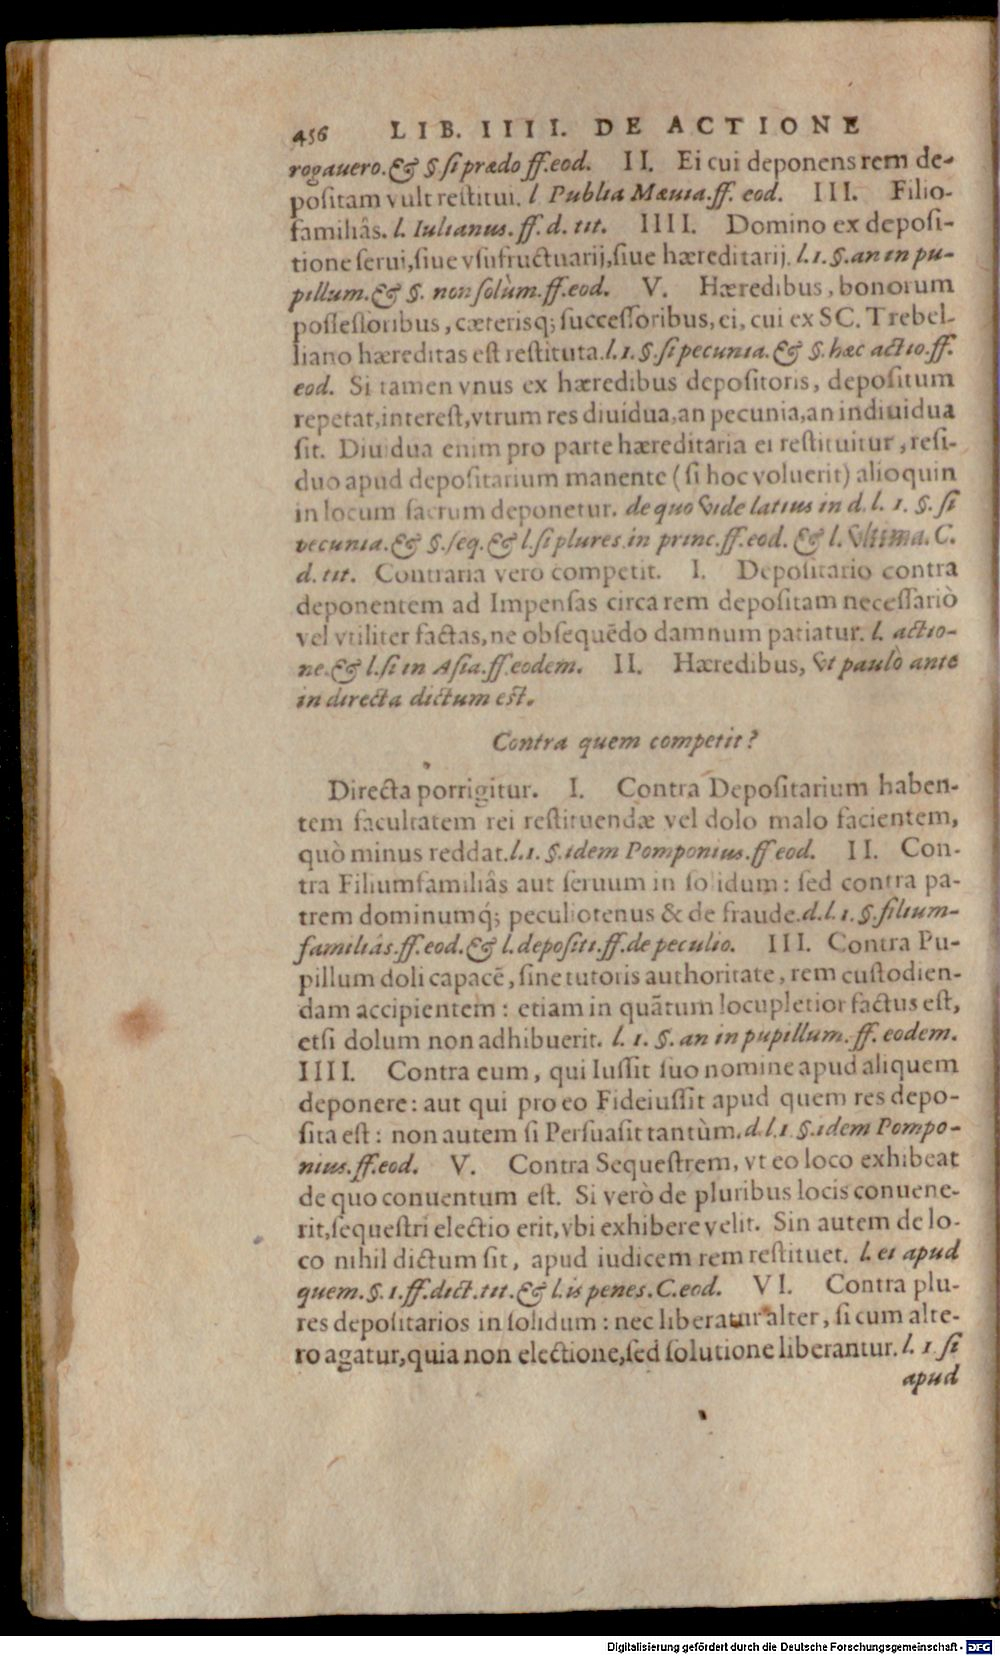 456 LIB. IIII. DE ACTIONE
rogauero. & §. si prædo ff. eod. II. Ei cui deponens rem de-
positam vult restitui. l Publia Mæuia. ff. eod. III. Filio-
familiâs. l. Iulianus. ff. d. tit. IIII. Domino ex deposi-
tione serui, siue vsufructuarij, siue hæreditarij. l. 1. §. an in pu-
pillum. & §. non solùm. ff. eod. V. Hæredibus, bonorum
possessoribus, cæterisq; successoribus, ei, cui ex SC. Trebel-
liano hæreditas est restituta. l. 1. §. si pecunia. & §. hæc actio. ff.
eod. Si tamen vnus ex hæredibus depositoris, depositum
repetat, interest, vtrum res diuidua, an pecunia, an indiuidua
sit. Diuidua enim pro parte hæreditaria ei restituitur, resi-
duo apud depositarium manente (si hoc voluerit) alioquin
in locum sacrum deponetur. de quo vide latius in d. l. 1. §. si
pecunia. & §. seq. & l. si plures. in princ. ff. eod. & l. vltima. C.
d. tit. Contraria vero competit. I. Depositario contra
deponentem ad Impensas circa rem depositam necessariò
vel vtiliter factas, ne obsequēdo damnum patiatur. l. actio-
ne. & l. si in Asia. ff. eodem. II. Hæredibus, vt paulò ante
in directa dictum est.
Contra quem competit?
Directa porrigitur. I. Contra Depositarium haben-
tem facultatem rei restituendæ vel dolo malo facientem,
quò minus reddat. l. 1. §. idem Pomponius. ff eod. II. Con-
tra Filiumfamiliâs aut seruum in solidum: sed contra pa-
trem dominumq́; peculiotenus & de fraude. d. l. 1. §. filium-
familiâs. ff. eod. & l. depositi. ff. de peculio. III. Contra Pu-
pillum doli capacē, sine tutoris authoritate, rem custodien-
dam accipientem: etiam in quātum locupletior factus est,
etsi dolum non adhibuerit. l. 1. §. an in pupillum. ff. eodem.
IIII. Contra eum, qui Iussit suo nomine apud aliquem
deponere: aut qui pro eo Fideiussit apud quem res depo-
sita est: non autem si Persuasit tantùm. d. l. 1 §. idem Pompo-
nius. ff. eod. V. Contra Sequestrem, vt eo loco exhibeat
de quo conuentum est. Si verò de pluribus locis conuene-
rit, sequestri electio erit, vbi exhibere velit. Sin autem de lo-
co nihil dictum sit, apud iudicem rem restituet. l. ei apud
quem. §. 1. ff. dict. tit. & l. is penes. C. eod. VI. Contra plu-
res depositarios in solidum: nec liberatur alter, si cum alte-
ro agatur, quia non electione, sed solutione liberantur. l. 1 si
apud
Digitalisierung gefördert durch die Deutsche Forschungsgemeinschaft - DFG